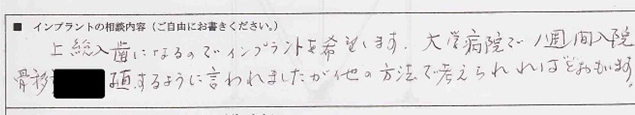 ■ インプラントの相談内容(ご自由にお書きください。)
上総入歯になるのでインプラントを希望します. 大学病院で1週間入院
骨移 植するように言われましたが他の方法で考えられればとおもいます。